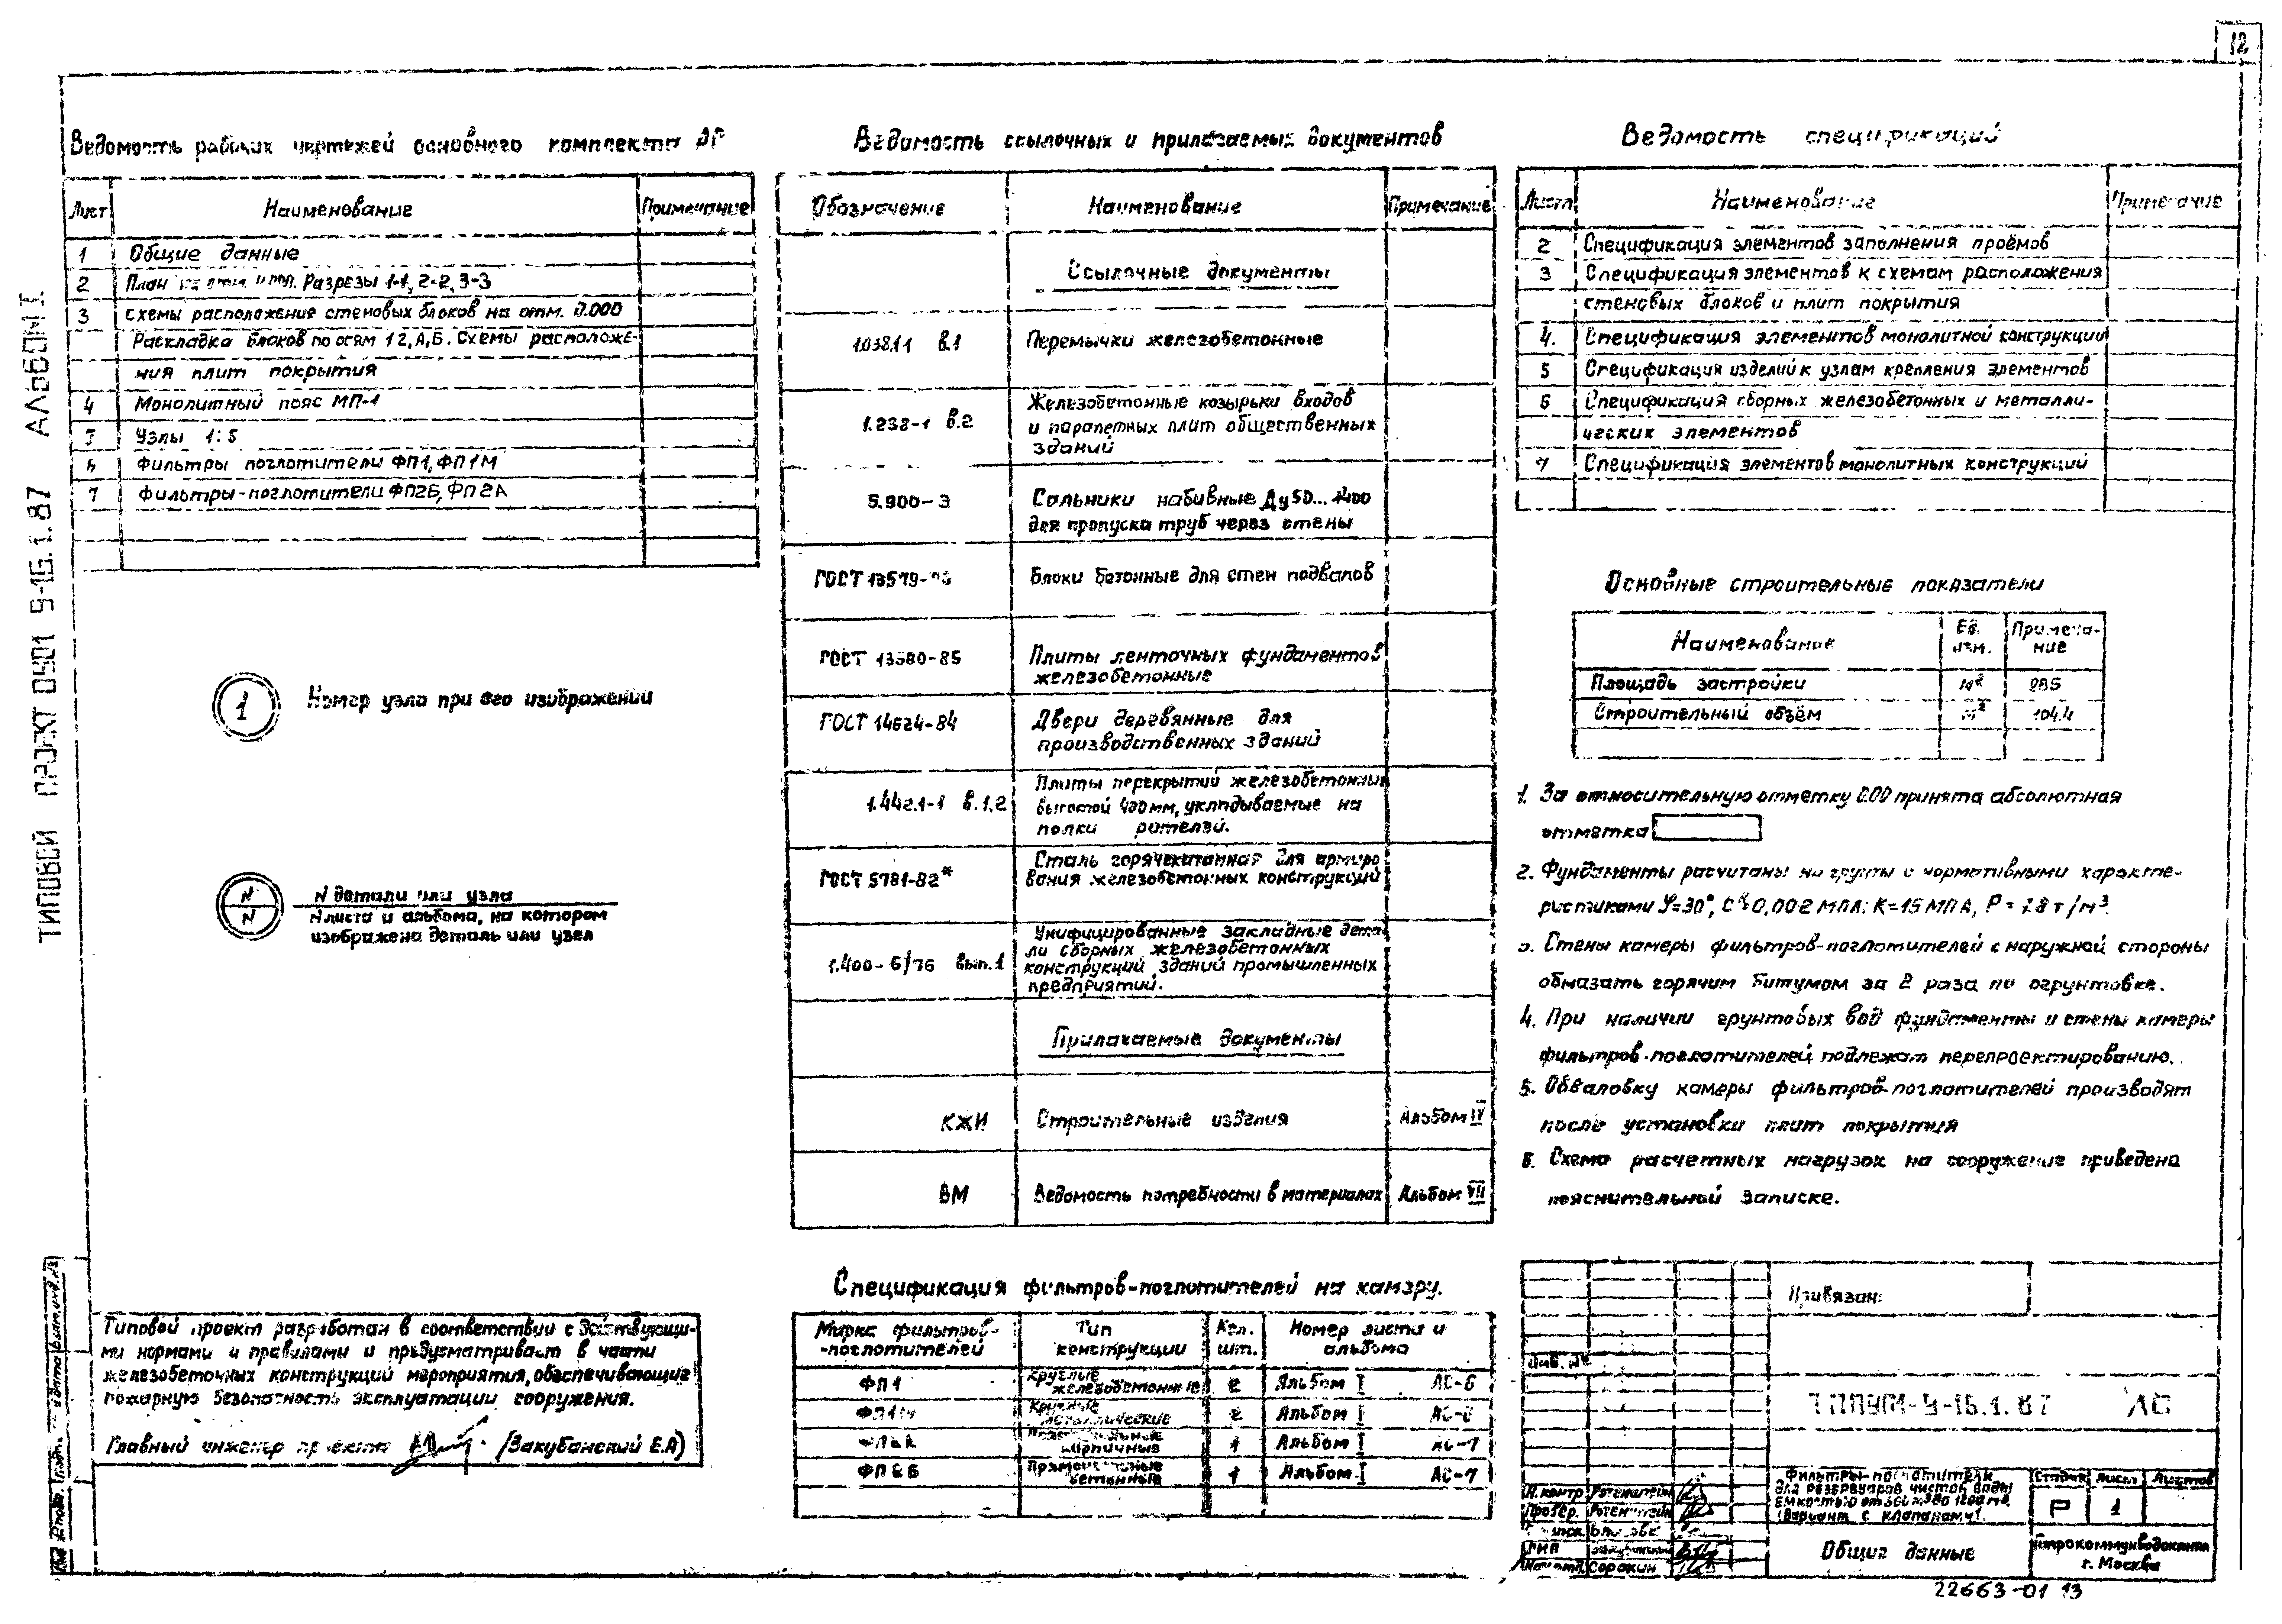 12
ТИПОВОЙ ПРОЕКТ 0901-9-16.1.87 АЛЬБОМ I
Ведомость рабочих чертежей основного комплекта
Лист Наименование Примечание
1 Общие данные
2 План Разрезы 1-1, 2-2, 3-3
3 Схемы расположения стеновых блоков на отм. 0.000
Раскладка блоков по осям 1 2, А, Б. Схемы расположе-
ния плит покрытия
4 Монолитный пояс МП-1
Узлы 1÷5
6 Фильтры поглотители ФП1, ФП1М
7 Фильтры-поглотители ФП2Б, ФП2А
1 Номер узла при его изображении
N N детали или узла
N N листа и альбома, на котором
изображена деталь или узел
Типовой проект разработан в соответствии с действующи-
ми нормами и правилами и предусматривает в части
железобетонных конструкций мероприятия, обеспечивающие
пожарную безопасность эксплуатации сооружения.
Главный инженер проекта /Закубанский Е.А)
Ведомость ссылочных и прилагаемых документов
Обозначение Наименование Примечание
Ссылочные документы
1.038.1-1 в.1 Перемычки железобетонные
1.238-1 в.2 Железобетонные козырьки входов
и парапетных плит общественных
зданий
5.900-3 Сальники набивные Ду50...1400
для пропуска труб через стены
ГОСТ 13579- Блоки бетонные для стен подвалов
ГОСТ 13580-85 Плиты ленточных фундаментов
железобетонные
ГОСТ 14624-84 Двери деревянные для
производственных зданий
1.442.1-1 в.1.2 Плиты перекрытий железобетонные
высотой 400 мм, укладываемые на
полки ригелей.
ГОСТ 5781-82* Сталь горячекатанная для армиро
вания железобетонных конструкций
1.400-6/76 вып.1 Унифицированные закладные дета
ли сборных железобетонных
конструкций зданий промышленных
предприятий.
Прилагаемые документы
КЖИ Строительные изделия Альбом IV
ВМ Ведомость потребности в материалах Альбом VII
Спецификация фильтров-поглотителей на камеру.
Марка фильтров- Тип Кол. Номер листа и
-поглотителей конструкции шт. альбома
ФП1 Круглые железобетонные 2 Альбом I АС-6
ФП1М Круглые металлические 2 Альбом I АС-6
кирпичные 1 Альбом I АС-7
ФП2Б Прямоугольные бетонные 1 Альбом I АС-7
Ведомость спецификаций
Лист Наименование Примечание
2 Спецификация элементов заполнения проёмов
3 Спецификация элементов к схемам расположения
стеновых блоков и плит покрытия
4. Спецификация элементов монолитной конструкции
5 Спецификация изделий к узлам крепления элементов
6 Спецификация сборных железобетонных и металли-
ческих элементов
7 Спецификация элементов монолитных конструкций
Основные строительные показатели
Наименование Ед. изм. Примеча-
ние
Площадь застройки м² 285
Строительный объём 104.4
1. За относительную отметку 0.00 принята абсолютная
отметка
2. Фундаменты расчитаны на грунты с нормативными характе-
ристиками φ=30°, С=0,002 МПА; К=15 МПА, Р = 1.8 т/м³.
3. Стены камеры фильтров-поглотителей с наружной стороны
обмазать горячим битумом за 2 раза по огрунтовке.
4. При наличии грунтовых вод фундаменты и стены камеры
фильтров-поглотителей подлежат перепроектированию.
5. Обваловку камеры фильтров-поглотителей производят
после установки плит покрытия
6. Схема расчетных нагрузок на сооружение приведена
пояснительной записке.
Привязан:
Инв. №
ТП 0901-9-16.1.87 АС
Н. контр. Ротенштейн
Провер. Ротенштейн
ГИП Закубанский
Нач. отд. Сорокин
Фильтры-поглотители
для резервуаров чистой воды
(Вариант с клапанами).
Стадия Лист Листов
Р 1
Общие данные
Гипрокоммунводоканал
г. Москва
22663-01 13